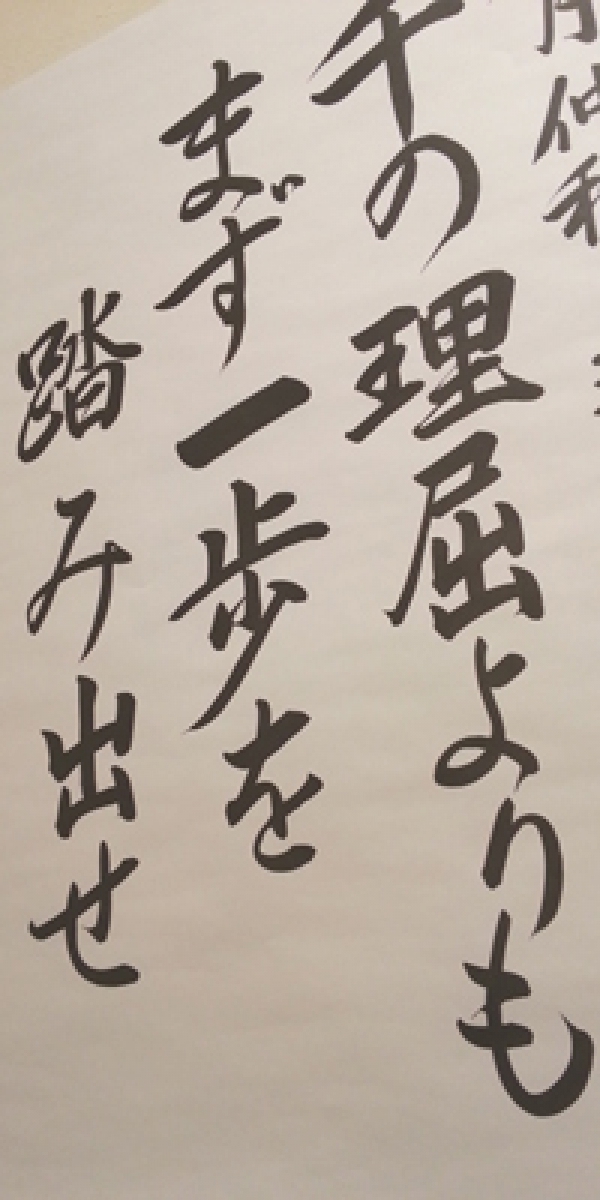 仲秋
千の理屈よりも
まず一歩を
踏み出せ